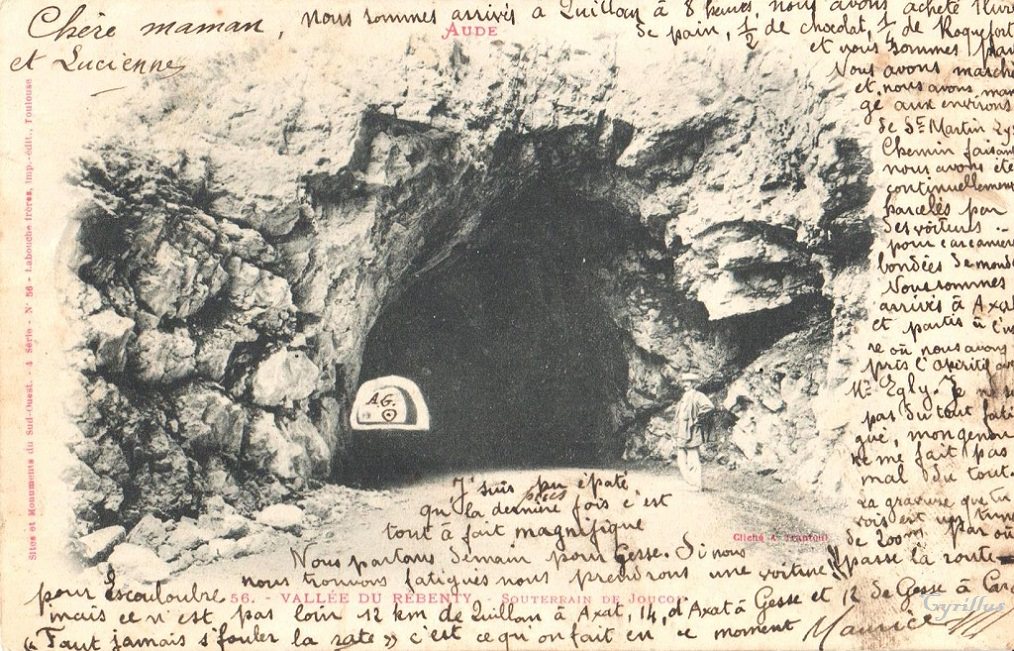 Chère maman,
et Lucienne
AUDE
nous sommes arrivés à Quillan à 8 heures, nous avons acheté 1 livre
de pain, ½ de chocolat, ¼ de Roquefort
et nous sommes
Nous avons marché
et nous avons man
gé aux environs
de St Martin Lys
Chemin faisant
nous avons été
continuellement
parcelés par
des voitures
pour carcanière
bondées de monde
Nous sommes
arrivés à Axat
et partis à
re où nous avons
pris l'apéritif
Mr Egly. Je ne
pas du tout fati
gué, mon genou
ne me fait pas
mal du tout.
La gravure que tu
vois est un
de 200m par où
passe la route
A.G.
J'suis épaté
qu la dernière fois c'est
tout à fait magnifique
Nous partons demain pour Gesse. Si nous
nous trouvons fatigués nous prendrons une voiture
pour Escouloubre
mais ce n'est pas loin 12 km de Quillan à Axat, 14, d'Axat à Gesse et 12 de Gesse à
« Faut jamais s'fouler la rate » c'est ce qu'on fait en ce moment
Maurice
Cliché
56. - VALLÉE DU REBENTY. - SOUTERRAIN DE JOUCOU
Sites et Monuments du Sud-Ouest. - 4 Série - N° 56 - Labouche frères, imp.-édit., Toulouse
Cyrillus